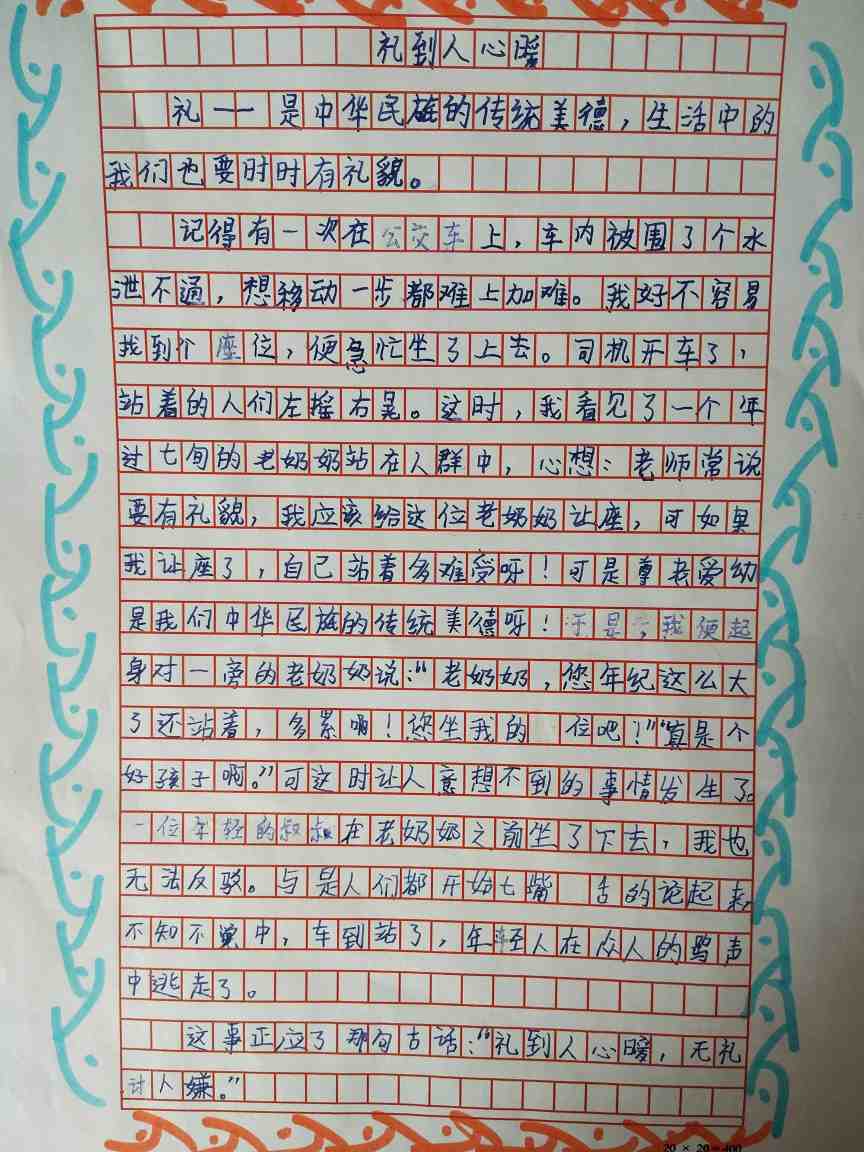 礼到人心暖
礼——是中华民族的传统美德，生活中的
我们也要时时有礼貌。
记得有一次在公交车上，车内被围了个水
泄不通，想移动一步都难上加难。我好不容易
找到个座位，便急忙坐了上去。司机开车了，
站着的人们左摇右晃。这时，我看见了一个年
过七旬的老奶奶站在人群中，心想：老师常说
要有礼貌，我应该给这位老奶奶让座，可如果
我让座了，自己站着多难受呀！可是尊老爱幼
是我们中华民族的传统美德呀！于是，我便起
身对一旁的老奶奶说：“老奶奶，您年纪这么大
了还站着，多累啊！您坐我的 位吧！”“真是个
好孩子啊。”可这时让人意想不到的事情发生了。
一位年轻的叔叔在老奶奶之前坐了下去，我也
无法反驳。与是人们都开始七嘴 舌的论起来，
不知不觉中，车到站了，年轻人在众人的骂声
中逃走了。
这事正应了那句古话：“礼到人心暖，无礼
讨人嫌。”
20 × 20=400